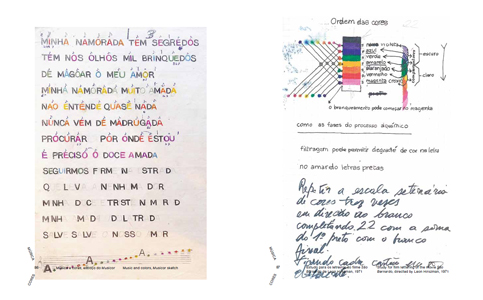 MINHA NAMORADA TEM SEGREDOS
TEM NOS OLHOS MIL BRINQUEDOS
DE MAGOAR O MEU AMOR
MINHA NAMORADA MUITO AMADA
NAO ENTENDE QUASE NADA
NUNCA VEM DE MADRUGADA
PROCURAR POR ONDE ESTOU
É PRECISO Ó DOCE AMADA
SEGUIRMOS FIRM N STR D
Q L V N NH M D R
MNH D C TRST N M R D
MNH M D D L TR D
S LV S LV N SS M R
A A A
Music and colors,
MÚSICA
CORES
Ordem das cores
azul
verde
amarelo
alaranjado
vermelho
magenta
escuro
claro
o branqueamento pode começar do magenta
como as fases do processo alquímico
filtragem pode permitir degradé de cor na letra
no amarelo letras pretas
Repetir a escala setenária
de cores três vezes
em direção ao branco
completando 22 com a soma
do 1º preto com o branco
final.
Bernardo, directed by Leon Hirszman, 1971
MÚSICA
CORES